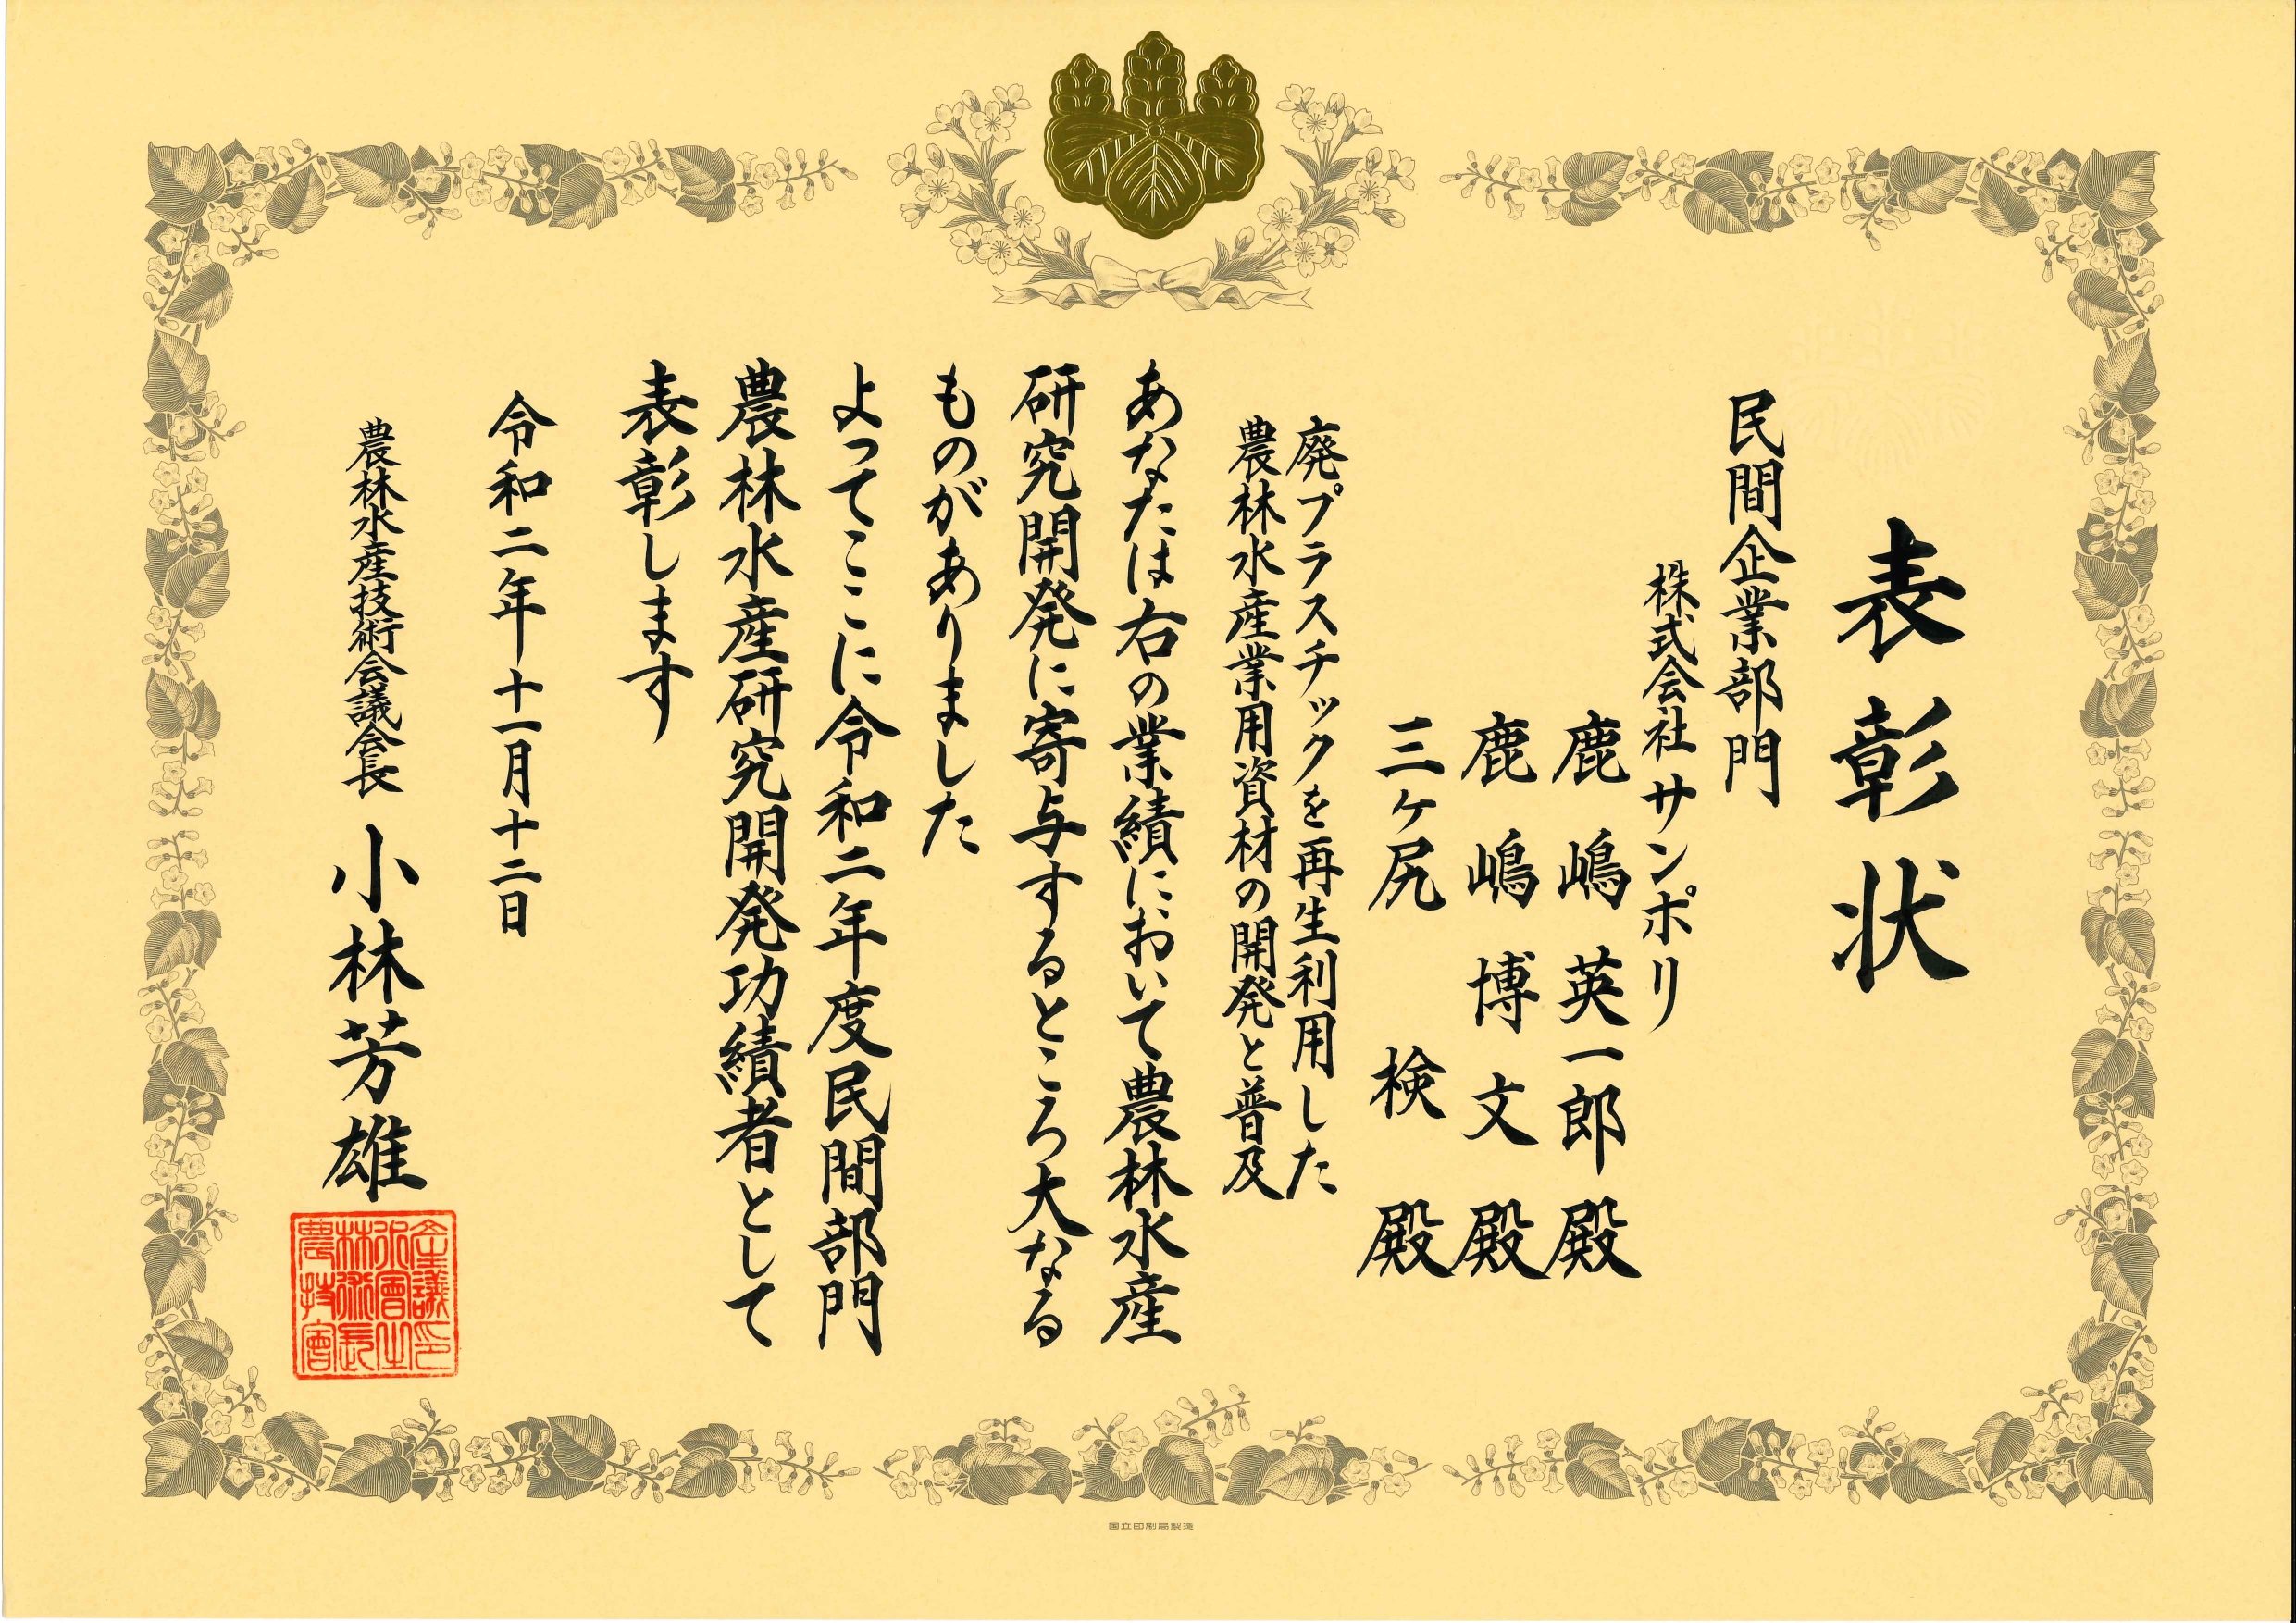 表彰状
民間企業部門
株式会社サンポリ
鹿嶋英一郎殿
鹿嶋博文殿
三ヶ尻検殿
廃プラスチックを再生利用した
農林水産業用資材の開発と普及
あなたは右の業績において農林水産
研究開発に寄与するところ大なる
ものがありました
よってここに令和二年度民間部門
農林水産研究開発功績者として
表彰します
令和二年十一月十二日
農林水産技術会議会長 小林芳雄
国立印刷局製造